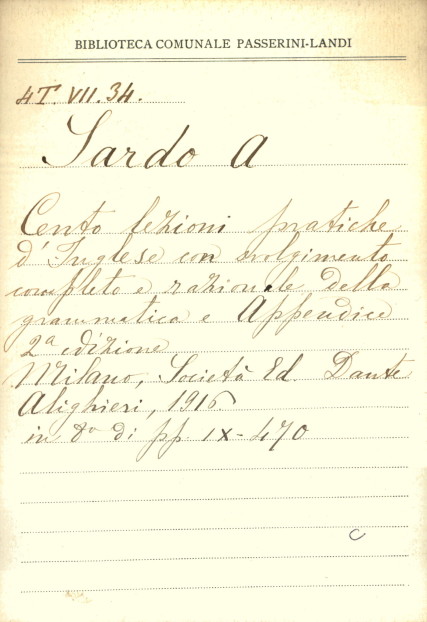 BIBLIOTECA COMUNALE PASSERINI-LANDI
4T. VII. 34.
Sardo A
Cento lezioni pratiche
d'Inglese con svolgimento
completo e razionale della
grammatica e Appendice
2a edizione
Milano, Società Ed. Dante
Alighieri, 1916
in 8o di pp. IX-470
C